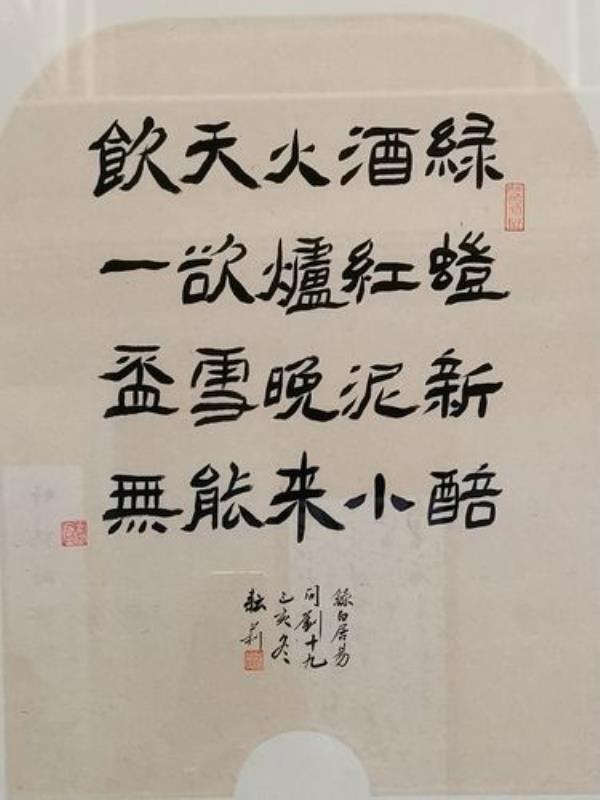 緑螘新醅
酒紅泥小
火爐晚来
天欲雪能
飲一盃無
錄白居易
问劉十九
己亥冬
耘莉